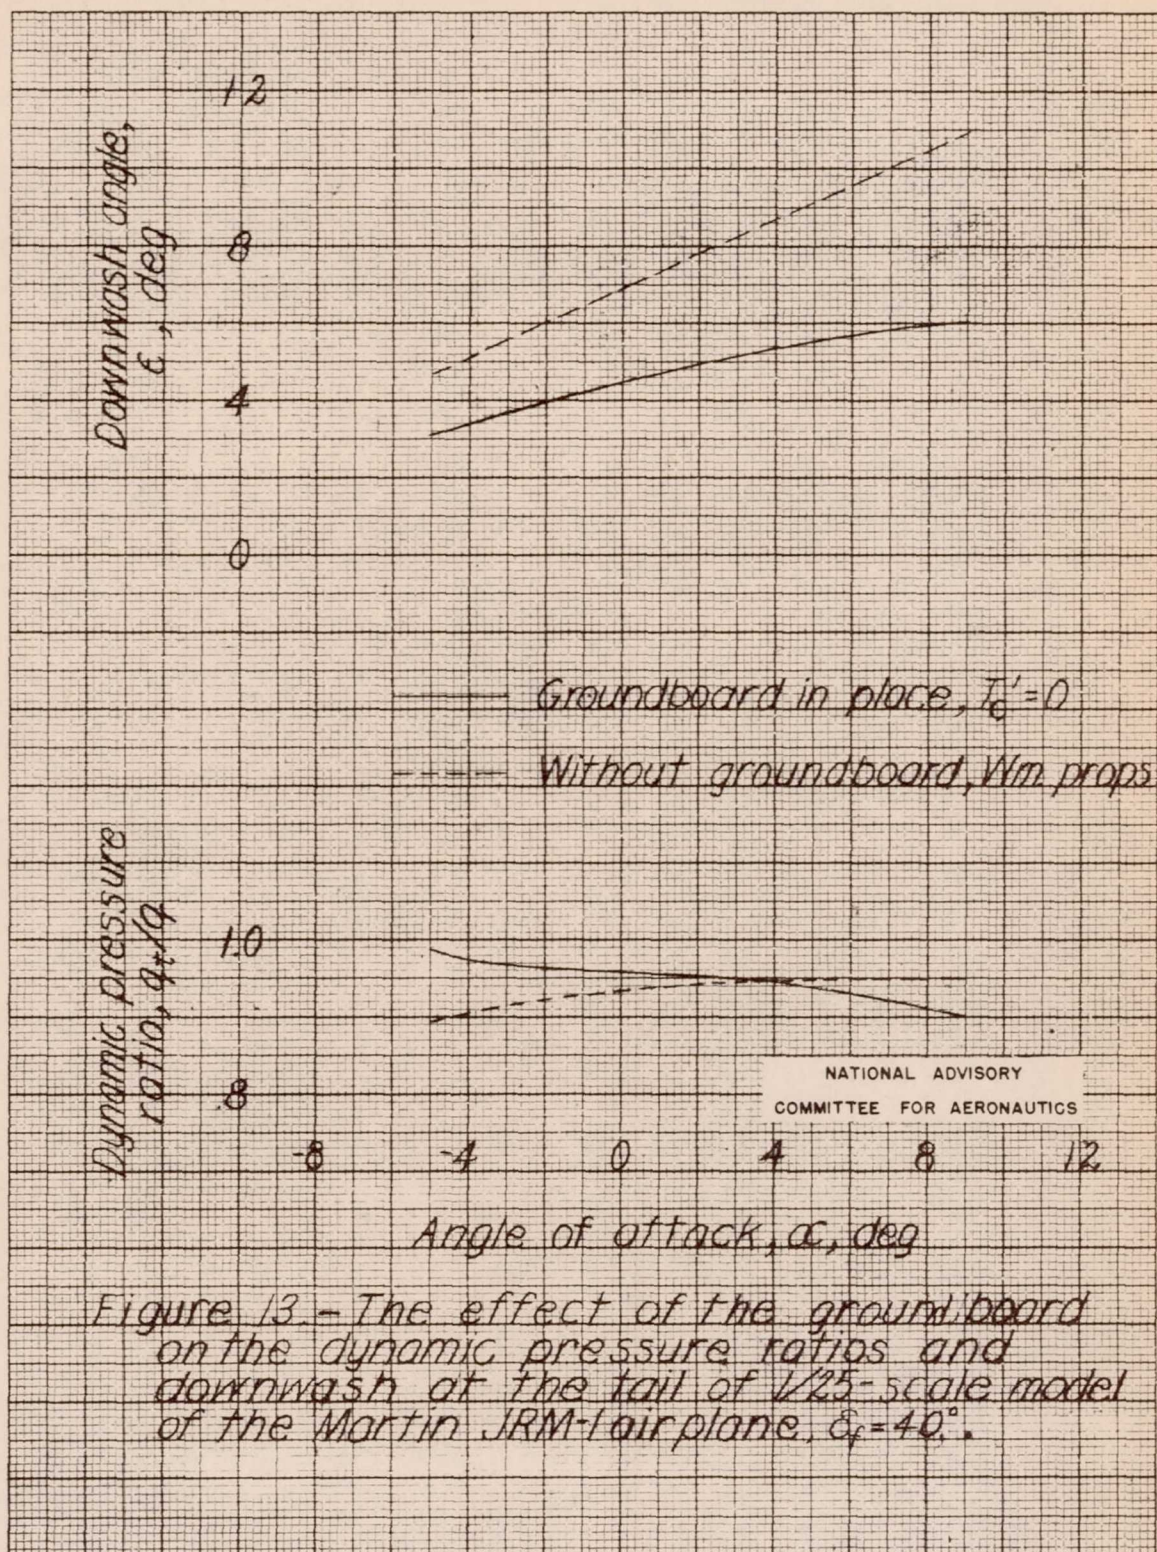 12
Downwash angle,
ϵ, deg
8
4
0
Groundboard in place, Tc'=0
Without groundboard, Wm. props
Dynamic pressure
ratio, qt/q
1.0
.8
NATIONAL ADVISORY
COMMITTEE FOR AERONAUTICS
-8 -4 0 4 8 12
Angle of attack, α, deg
Figure 13.- The effect of the ground board
on the dynamic pressure ratios and
downwash at the tail of 1/25-scale model
of the Martin JRM-1 airplane, δf=40°.